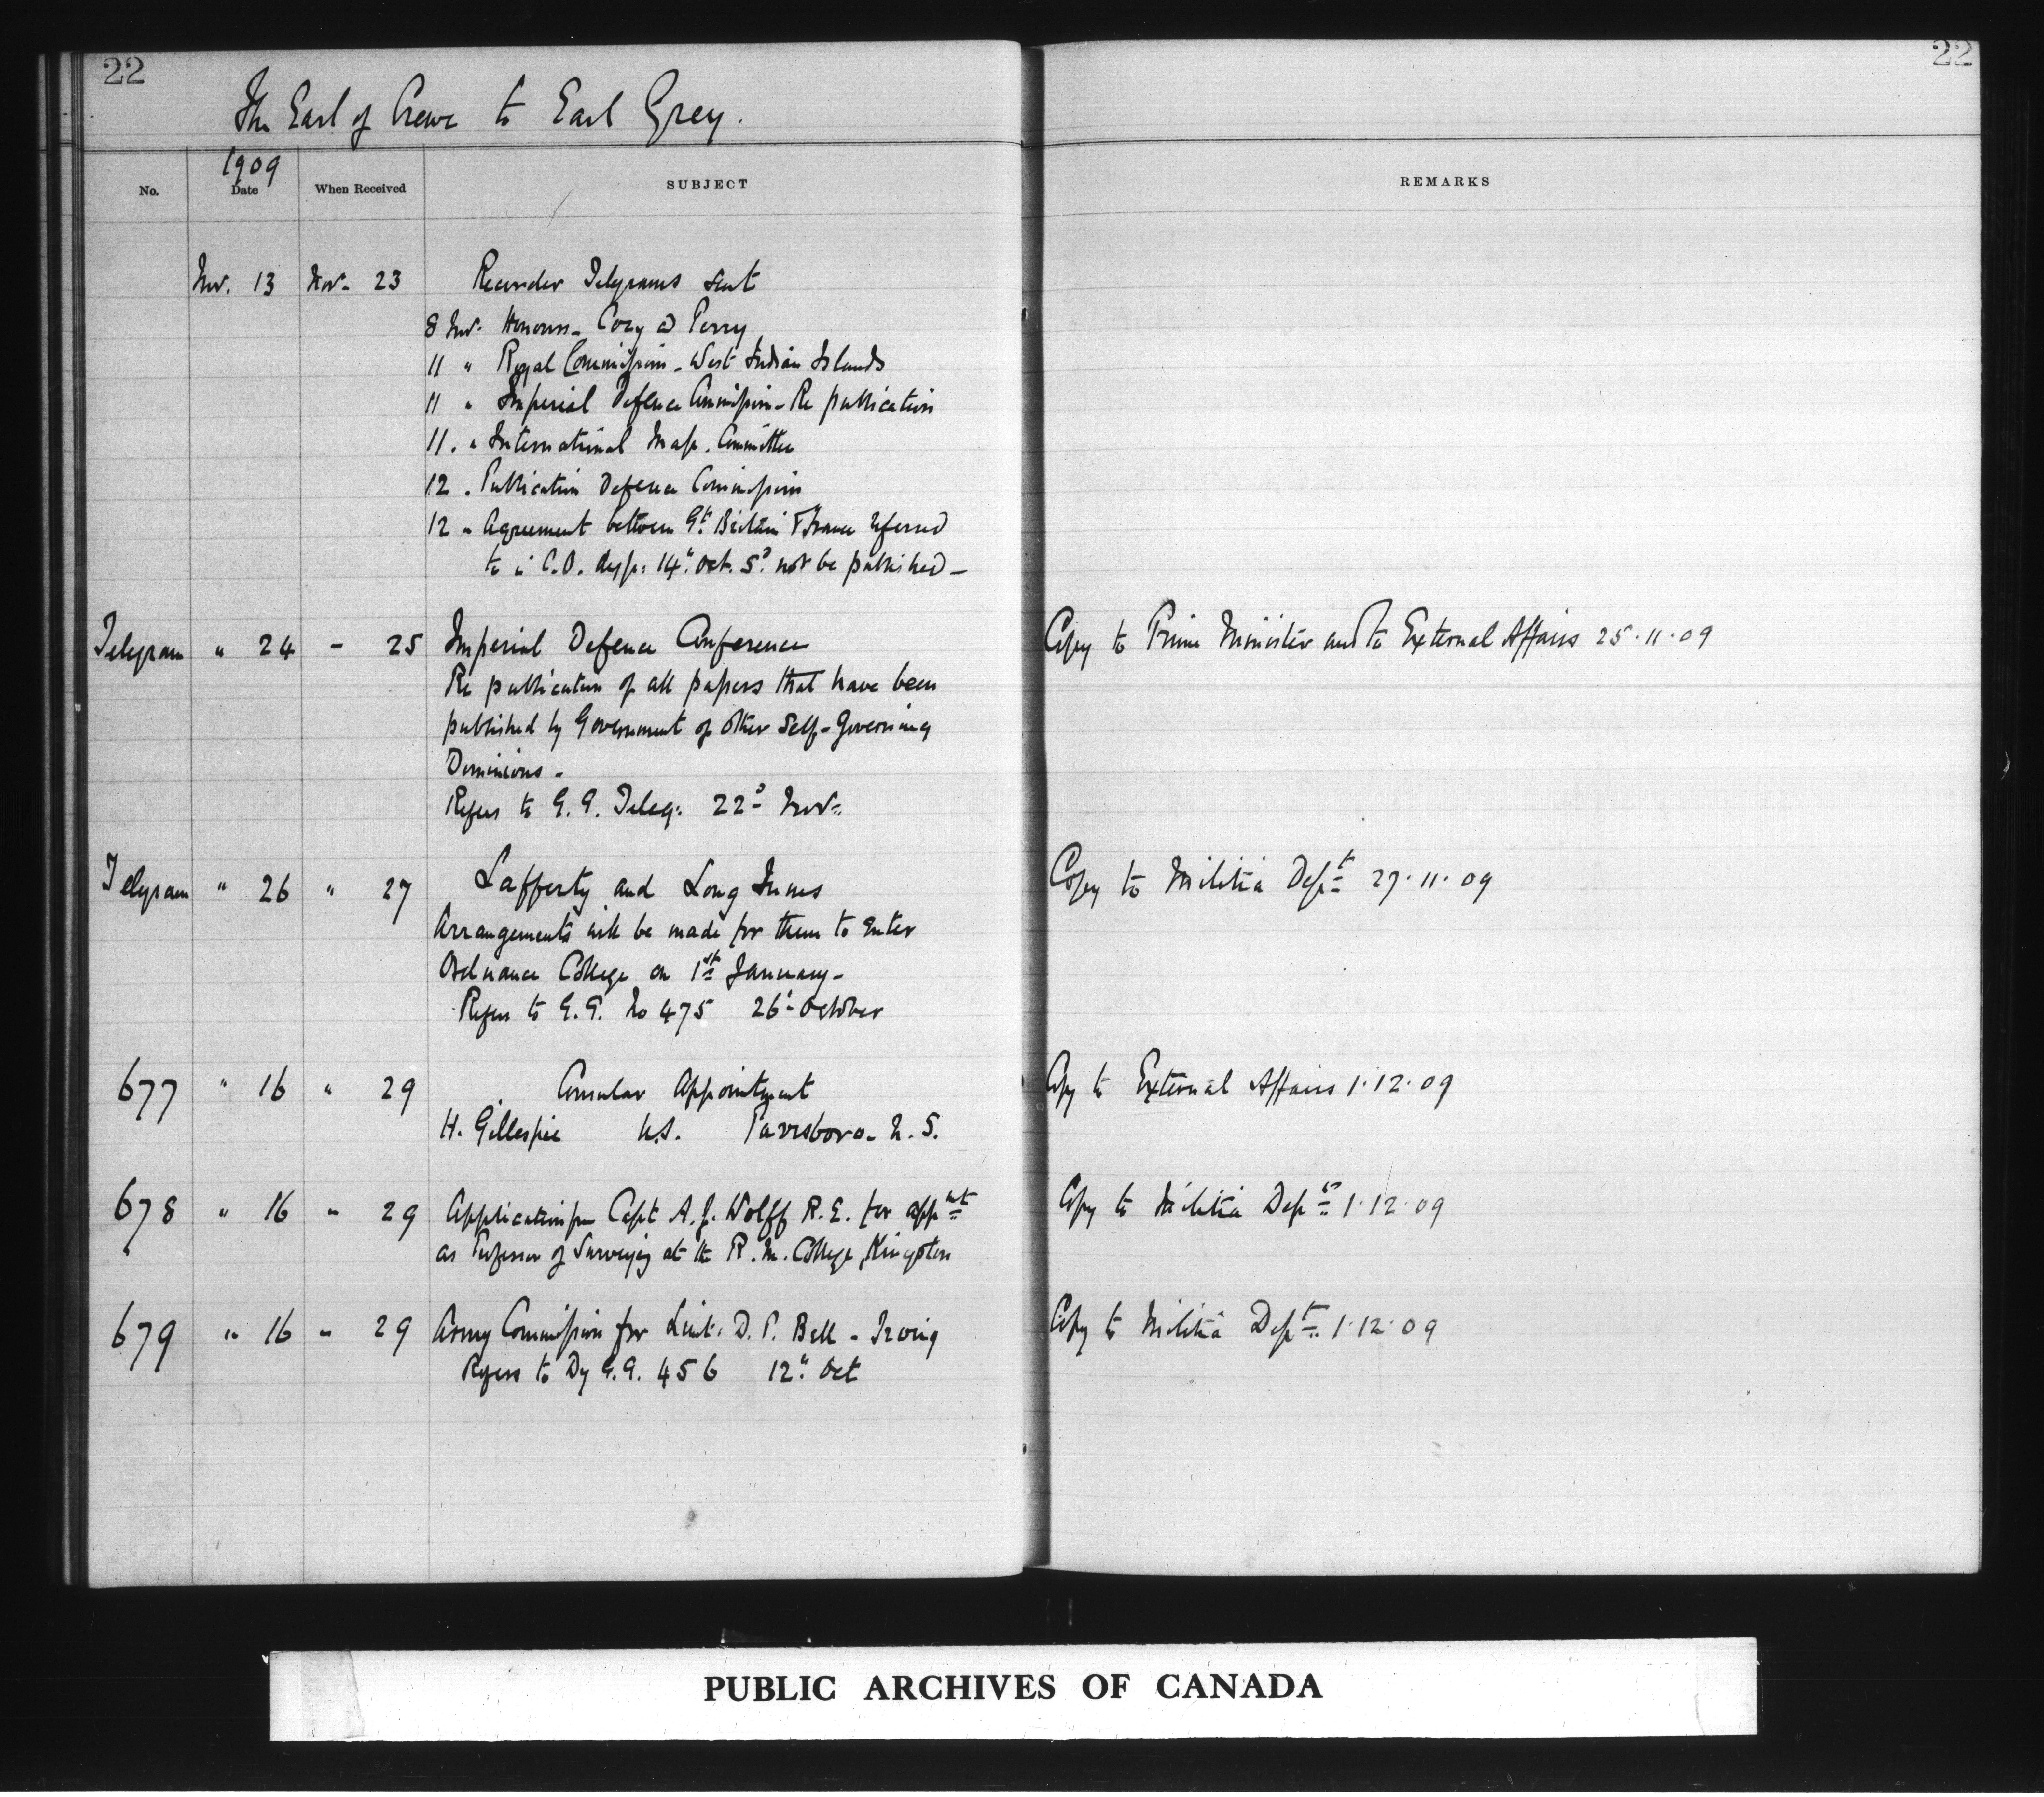 22
22
The Earl of Crewe to Earl Grey.
1909
No.
Date
When Received
SUBJECT
REMARKS
Nov. 13 Nov. 23 Recorder Telegrams sent
8 Nov. Honours - Cory & Perry
11 " Royal Commission - West Indian Islands
11 " Imperial Defence Commission - Re publication
11. " International Map. Committee
12 . Publication Defence Commission
12 " Agreement between Gt. Britain & France referred
to in C.O. desp: 14th Oct. Sd. not be published -
Telegram " 24 - 25 Imperial Defence Conference Copy to Prime Minister and to External Affairs 25.11.09
Re publication of all papers that have been
published by Government of other Self-Governing
Dominions -
Refers to G.G. Teleg: 22d Nov.
Telegram " 26 " 27 Lafferty and Long Innes Copy to Militia Dept 27.11.09
Arrangements will be made for them to enter
Ordnance College on 1st January -
Refers to G.G. No 475 26th October
677 " 16 " 29 Consular Appointment Copy to External Affairs 1.12.09
H. Gillespie U.S. Parrsboro - N.S.
678 " 16 " 29 Application from Capt A.J. Wolff R.E. for appnt Copy to Militia Dept 1.12.09
as Professor of Surveying at the R.M. College, Kingston
679 " 16 " 29 Army Commission for Lieut: D.P. Bell - Irving Copy to Militia Dept 1.12.09
Refers to Dy G.G. 456 12th Oct
PUBLIC ARCHIVES OF CANADA